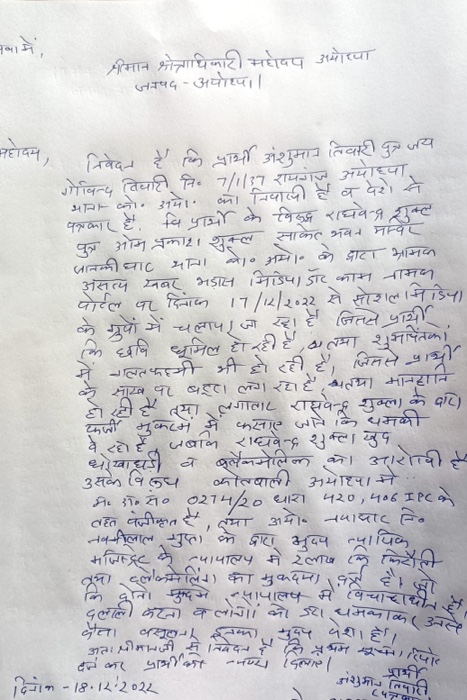 सेवा में,
श्रीमान क्षेत्राधिकारी महोदय अयोध्या
जनपद - अयोध्या।
महोदय,
निवेदन है कि प्रार्थी अंशुमान तिवारी पुत्र जय
गोविन्द तिवारी नि० 7/1/37 रायगंज अयोध्या
थाना को० अयो० का निवासी है व पेशे से
पत्रकार है। कि प्रार्थी के विरुद्ध राघवेन्द्र शुक्ल
पुत्र ओम प्रकाश शुक्ल साकेत भवन मन्दिर
जानकी घाट थाना को० अयो० के द्वारा भ्रामक
असत्य खबर भड़ास मिडिया डॉट काम नामक
पोर्टल पर दिनांक 17/12/2022 से सोशल मिडिया
के ग्रुपों में चलाया जा रहा है जिससे प्रार्थी
कि छवि धूमिल हो रही है, तथा शुभचिंतकों
में गलतफहमी भी हो रही है, जिससे प्रार्थी
के साख पर बट्टा लग रहा है, तथा मानहानि
हो रही है तथा लगातार राघवेन्द्र शुक्ला के द्वारा
फर्जी मुकदमें में फसाए जाने कि धमकी
दे रहा है, जबकि राघवेन्द्र शुक्ला खुद
धोखाधड़ी व ब्लैकमेलिंग का आरोपी है
उसके विरुद्ध कोतवाली अयोध्या में
मु० अ० सं० 0274/20 धारा 420, 406 IPC के
तहत पंजीकृत है, तथा अयो० नयाघाट नि०
गुप्ता के द्वारा मुख्य न्यायिक
मजिस्ट्रेट के न्यायालय में 2 लाख कि फिरौती
तथा ब्लैकमेलिंग का मुकदमा दर्ज है। जो
कि दोनो मुकदमा न्यायालय में विचाराधीन है,
दलाली करना व लोगो को डरा धमकाकर उनसे
पैसा वसूलना इनका मुख्य पेशा है।
अतः श्रीमानजी से निवेदन है कि प्रथम सूचना रिपोर्ट
दर्ज कर प्रार्थी को न्याय दिलाए।
प्रार्थी
दिनांक - 18.12.2022
अंशुमान तिवारी
पत्रकार